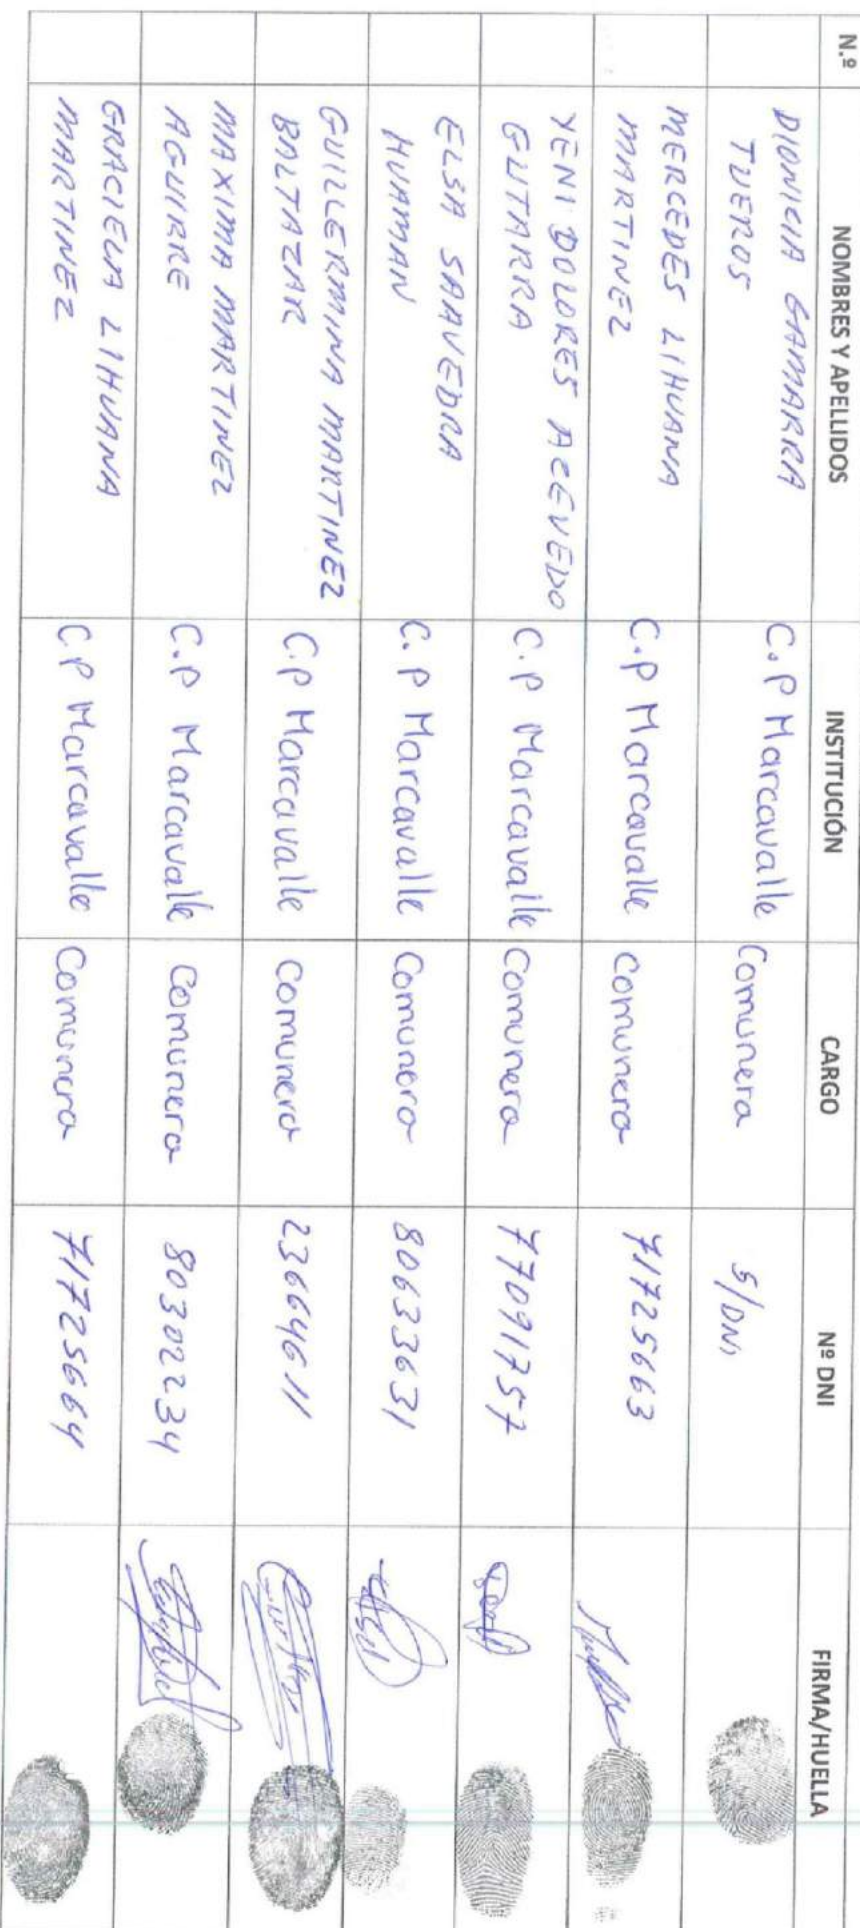 N.º NOMBRES Y APELLIDOS INSTITUCIÓN CARGO Nº DNI FIRMA/HUELLA
DIONICIA GAMARRA
TUEROS C.P Marcavalle Comunera S/DNI
MERCEDES LIHUANA
MARTINEZ C.P Marcavalle Comunera 71725663
YENI DOLORES ACEVEDO
GUTARRA C.P Marcavalle Comunera 77091757
ELSA SAAVEDRA
HUAMAN C.P Marcavalle Comunera 80633631
GUILLERMINA MARTINEZ
BALTAZAR C.P Marcavalle Comunera 23664611
MAXIMA MARTINEZ
AGUIRRE C.P Marcavalle Comunera 80302234
GRACIELA LIHUANA
MARTINEZ C.P Marcavalle Comunera 71725664